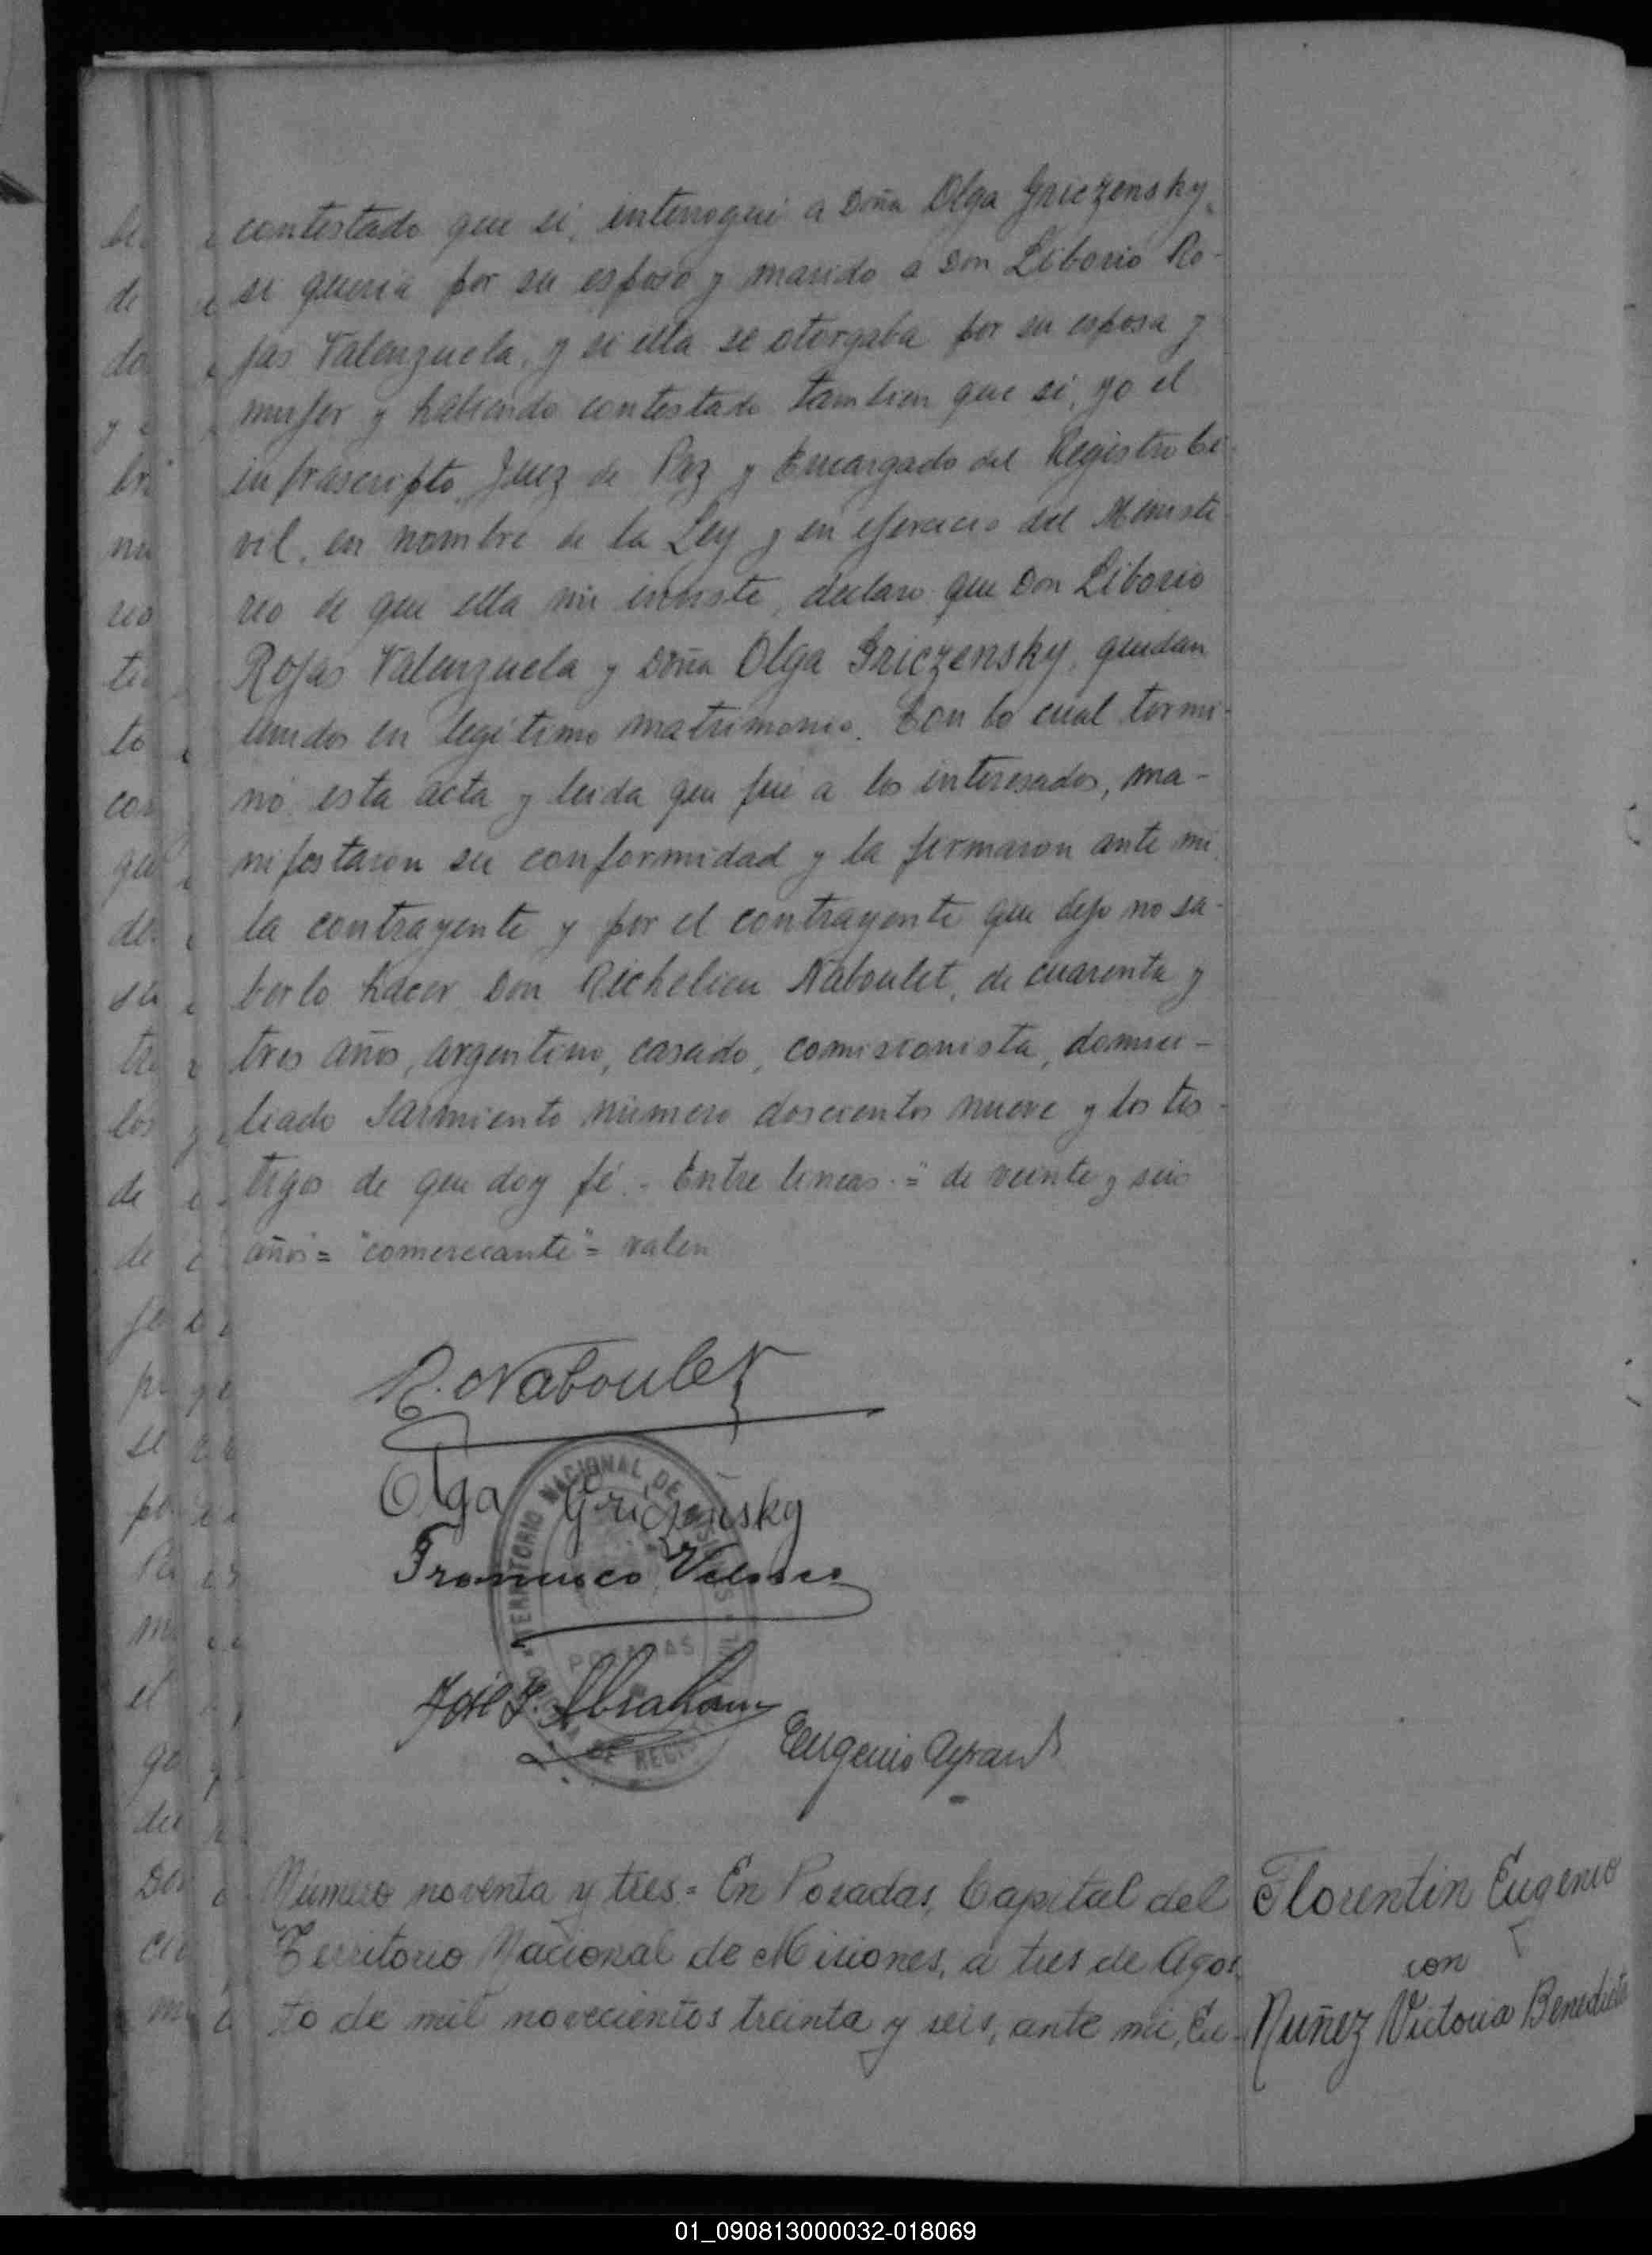 contestado que si, interrogué a Doña Olga Griczensky,
si queria por su esposo y marido a Don Liborio Ro-
jas Valenzuela, y si ella se otorgaba por su esposa y
mujer y habiendo contestado tambien que si, yo el
infrascripto Juez de Paz y Encargado del Registro Ci-
vil, en nombre de la Ley y en ejercicio del Ministe-
rio de que ella me inviste, declaro que Don Liborio
Rojas Valenzuela y Doña Olga Griczensky, quedan
unidos en legitimo matrimonio. Con lo cual termi-
nó esta acta y leida que fué a los interesados, ma-
nifestaron su conformidad y la firmaron ante mi
la contrayente y por el contrayente que dijo no sa-
berlo hacer Don Richelieu Naboulet, de cuarenta y
tres años, argentino, casado, comisionista, domici-
liado Sarmiento número doscientos nueve y los tes-
tigos de que doy fé.- Entre lineas.="de veinte y seis
años="comerciante"=valen
R. Naboulet
Olga Griczensky
Francisco
José Abraham
Eugenio
TERRITORIO NACIONAL DE MISIONES
POSADAS
Número noventa y tres.= En Posadas, Capital del
Territorio Nacional de Misiones, a tres de Agos-
to de mil novecientos treinta y seis, ante mi, Eu-
Florentin Eugenio
con
Nuñez Victoria Benedicta
01_090813000032-018069